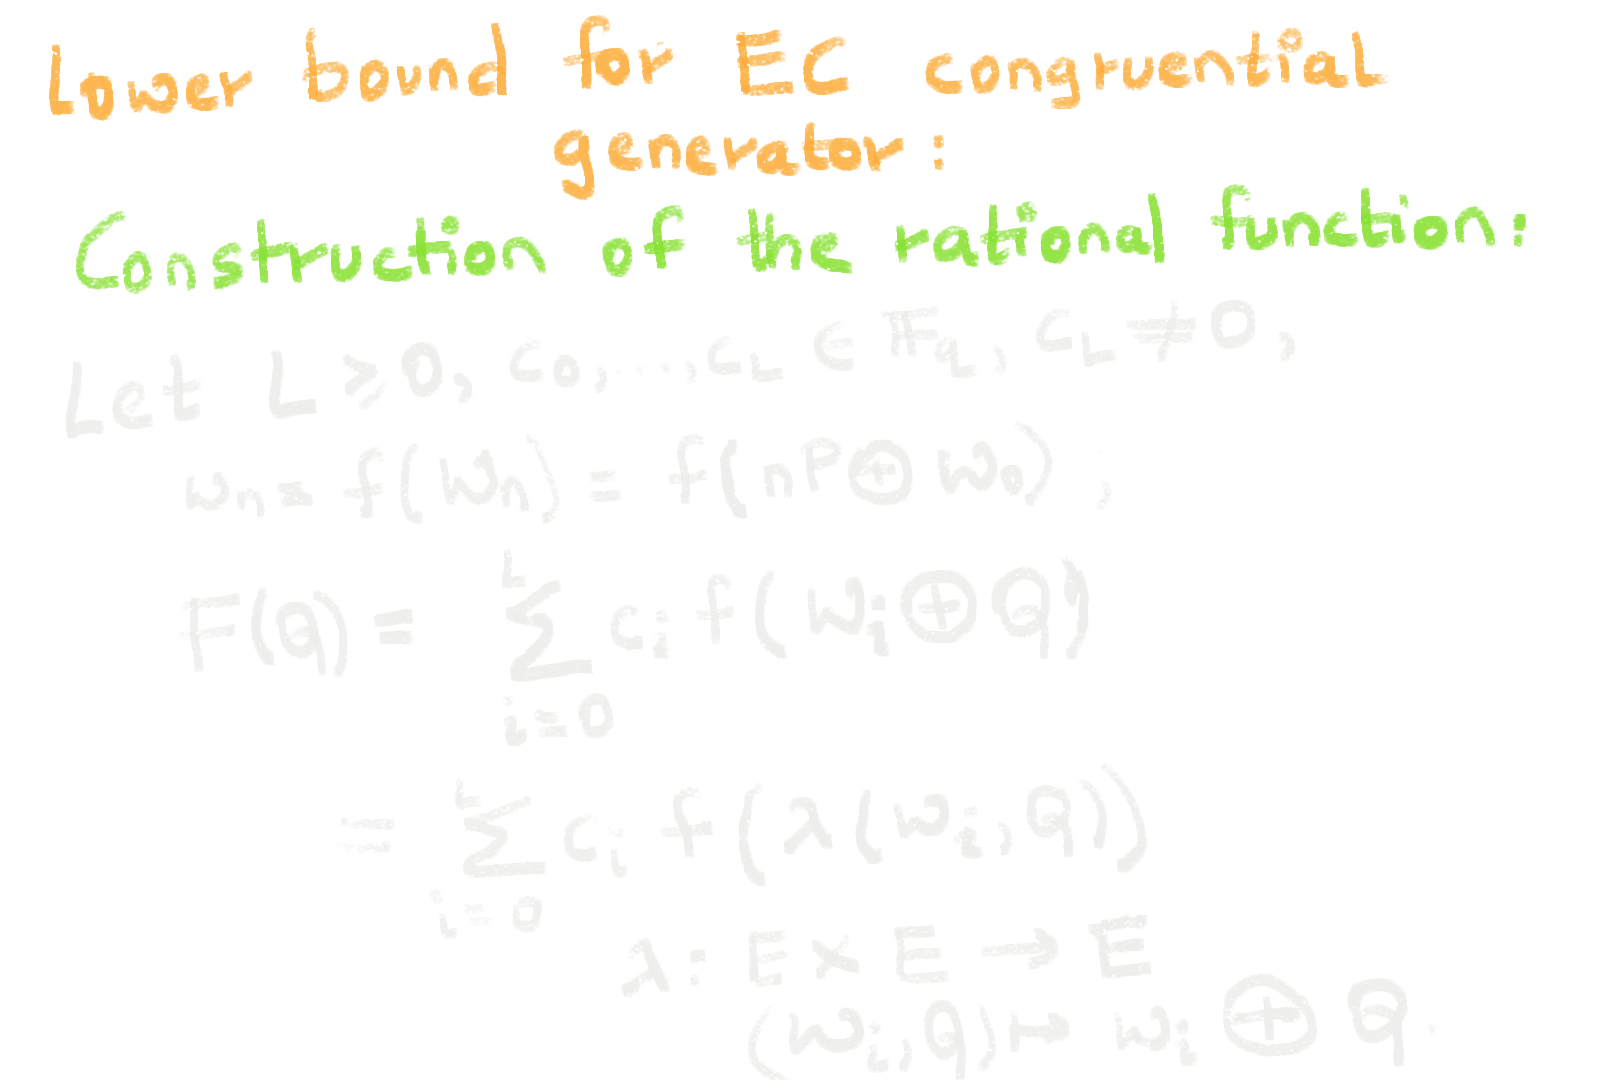 Lower bound for EC congruential
generator:
Construction of the rational function:
Let L ⩾ 0, c₀, ..., c_L ∈ 𝔽_q, c_L ≠ 0,
w_n = f(W_n) = f(nP ⊕ W₀),
F(Q) = ∑_{i=0}^{L} c_i f(W_i ⊕ Q)
= ∑_{i=0}^{L} c_i f(λ(W_i, Q))
λ: E × E → E
(W_i, Q) ↦ W_i ⊕ Q.